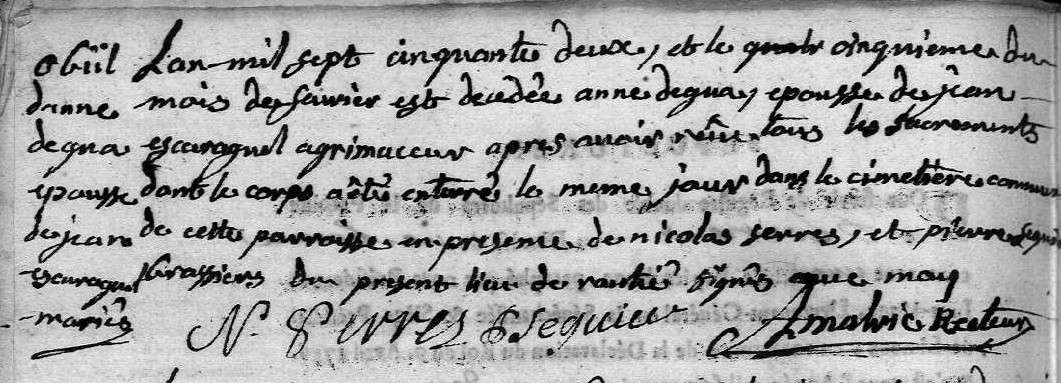 obiit
danne
degua
epousse
de jean
escuraguel
mariés
Lan mil sept cinquante deux, et le cinquieme du
mois de fevrier est decedée anne degua, epousse de jean
escuraguel agrimaceur apres avoir reçeu tous les sacrements
dont le corps a été enterré le meme jour dans le cimetiere commun
de cette parroisse en presence de nicolas serres, et pierre seguier
brassiers du present lieu de signés que moy
N. Serres P Seguier Amalric Recteur